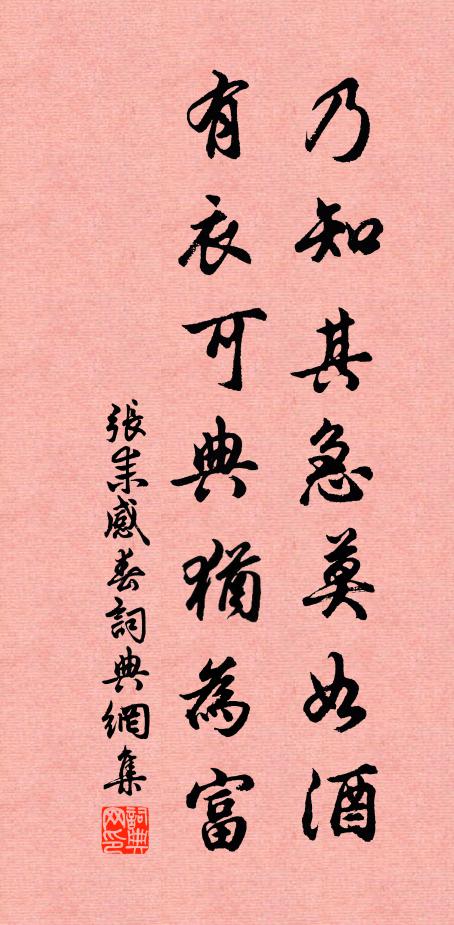 乃知其急莫如酒
有衣可典猶為富
張耒感春詞典網集
詞典
网印